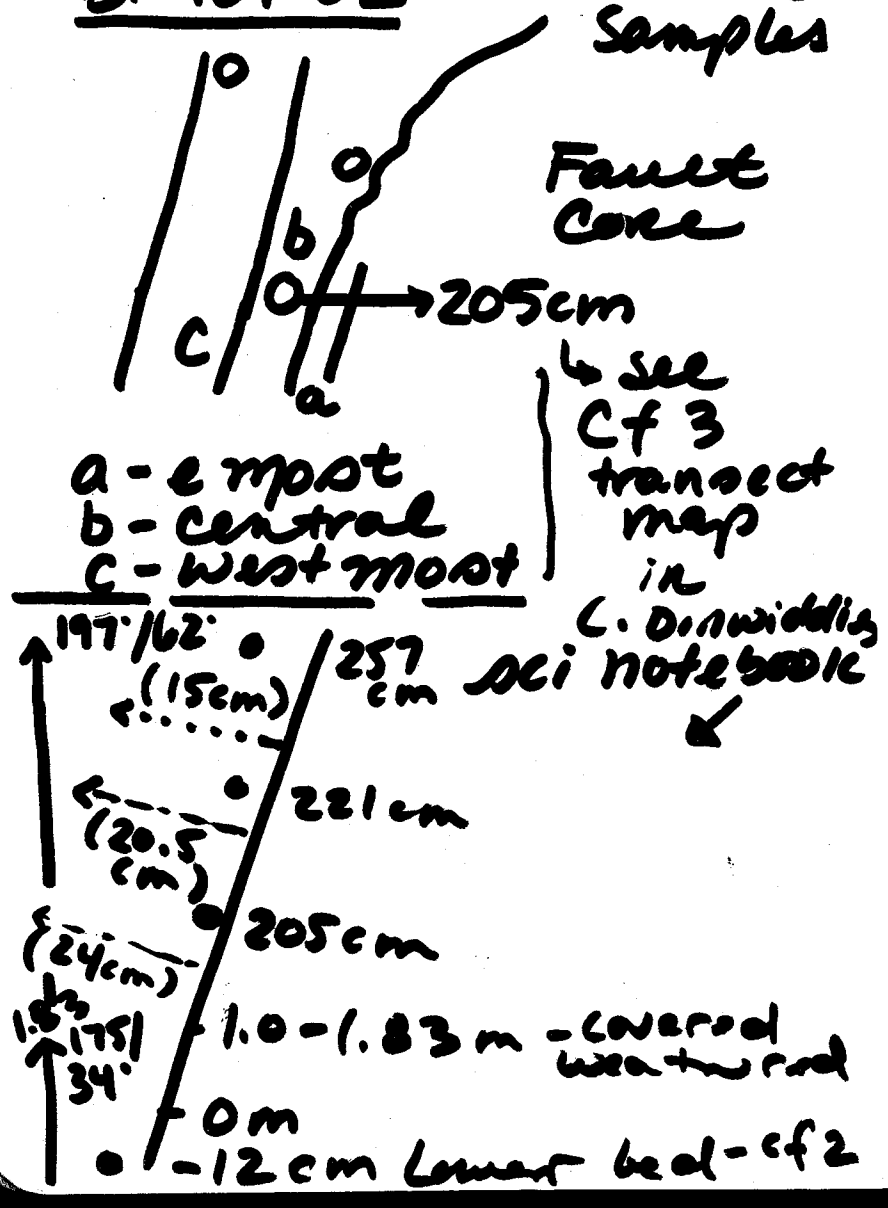 Samples
Fault
Core
b
205cm
c
a
↳ see
Cf 3
transect
map
in
C. Dinwiddie
sci notebook
a - e most
b - central
c - west most
197°/62°
257
cm
(15cm)
221cm
(20.5
cm)
205cm
(24cm)
175/
34°
1.0-1.83 m - covered
weathered
0m
-12 cm Lower bed - cf2